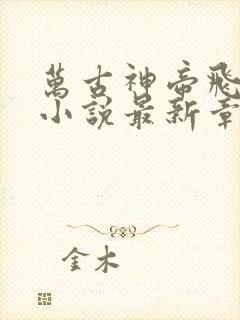 萬古神帝飛
小說最新章
金木